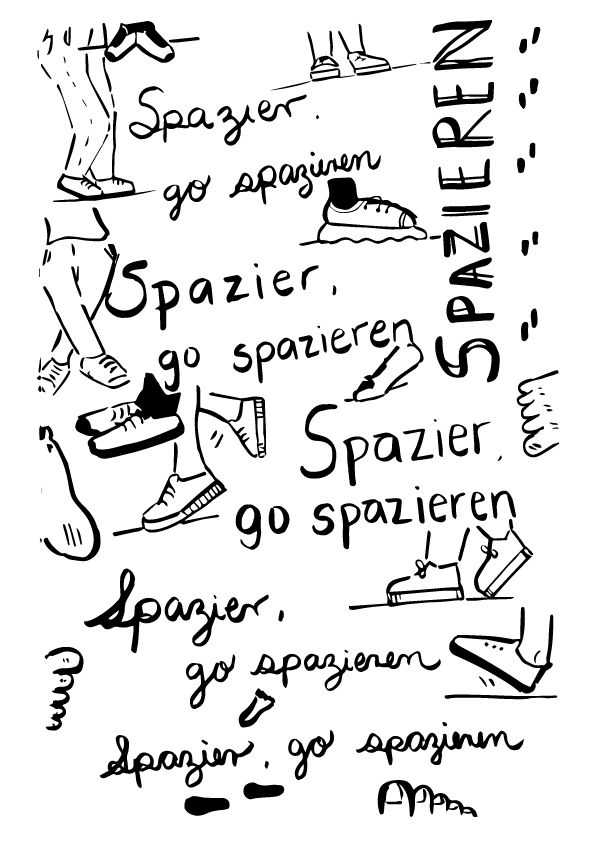 Spazier.
go spazieren
SPAZIEREN
Spazier,
go spazieren
Spazier,
go spazieren
Spazier,
go spazieren
Spazier, go spazieren